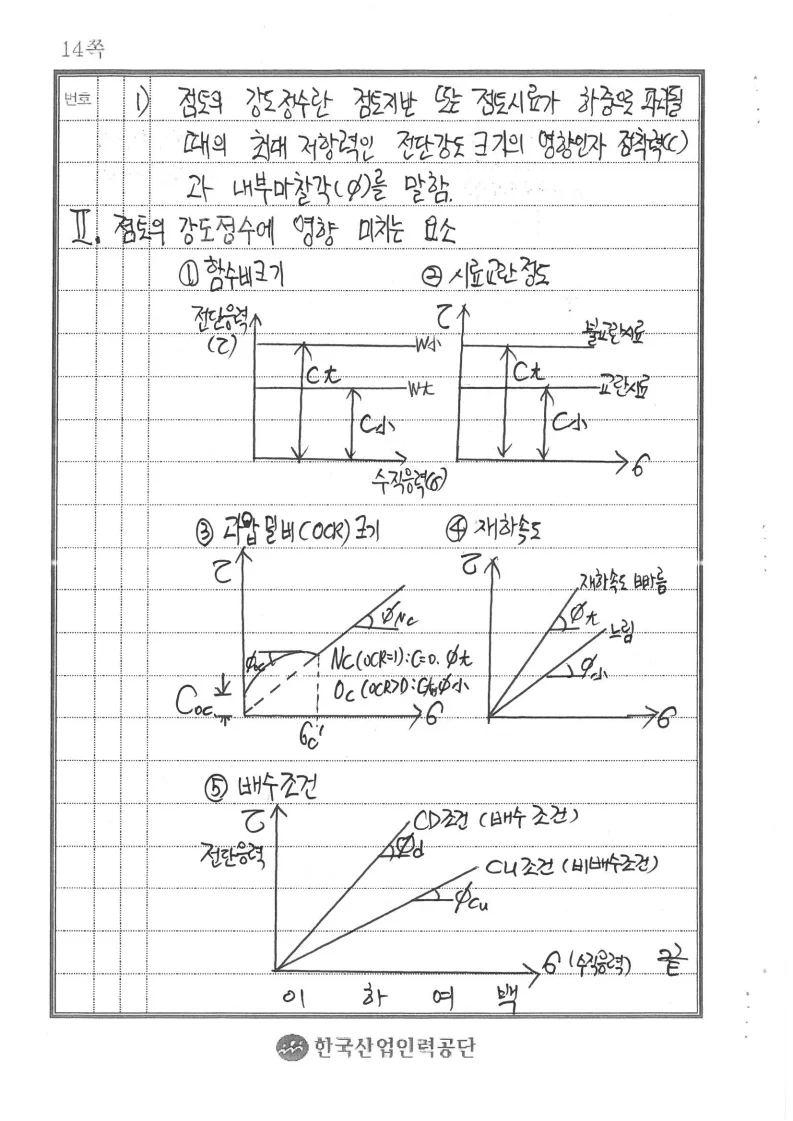 14쪽
번호 1) 점토의 강도정수란 점토지반 또는 점토시료가 하중으로 파괴될
때의 최대 저항력인 전단강도 크기의 영향인자 점착력(C)
과 내부마찰각(ϕ)를 말함.
Ⅱ. 점토의 강도정수에 영향 미치는 요소
① 함수비크기 ② 시료교란 정도
전단응력
(τ)
W小
C大
W大
C小
수직응력(σ)
τ
불교란시료
C大
교란시료
C小
σ
③ 과압밀비(OCR)크기 ④ 재하속도
τ
ϕNC
ϕoc
NC(OCR=1):C=0. ϕ大
OC(OCR>1):C有ϕ小
Coc
σc'
σ
τ
재하속도 빠름
ϕ大
느림
ϕ小
σ
⑤ 배수조건
τ
전단응력
CD조건 (배수 조건)
ϕd
CU조건 (비배수조건)
ϕcu
σ (수직응력) 끝
이 하 여 백
한국산업인력공단